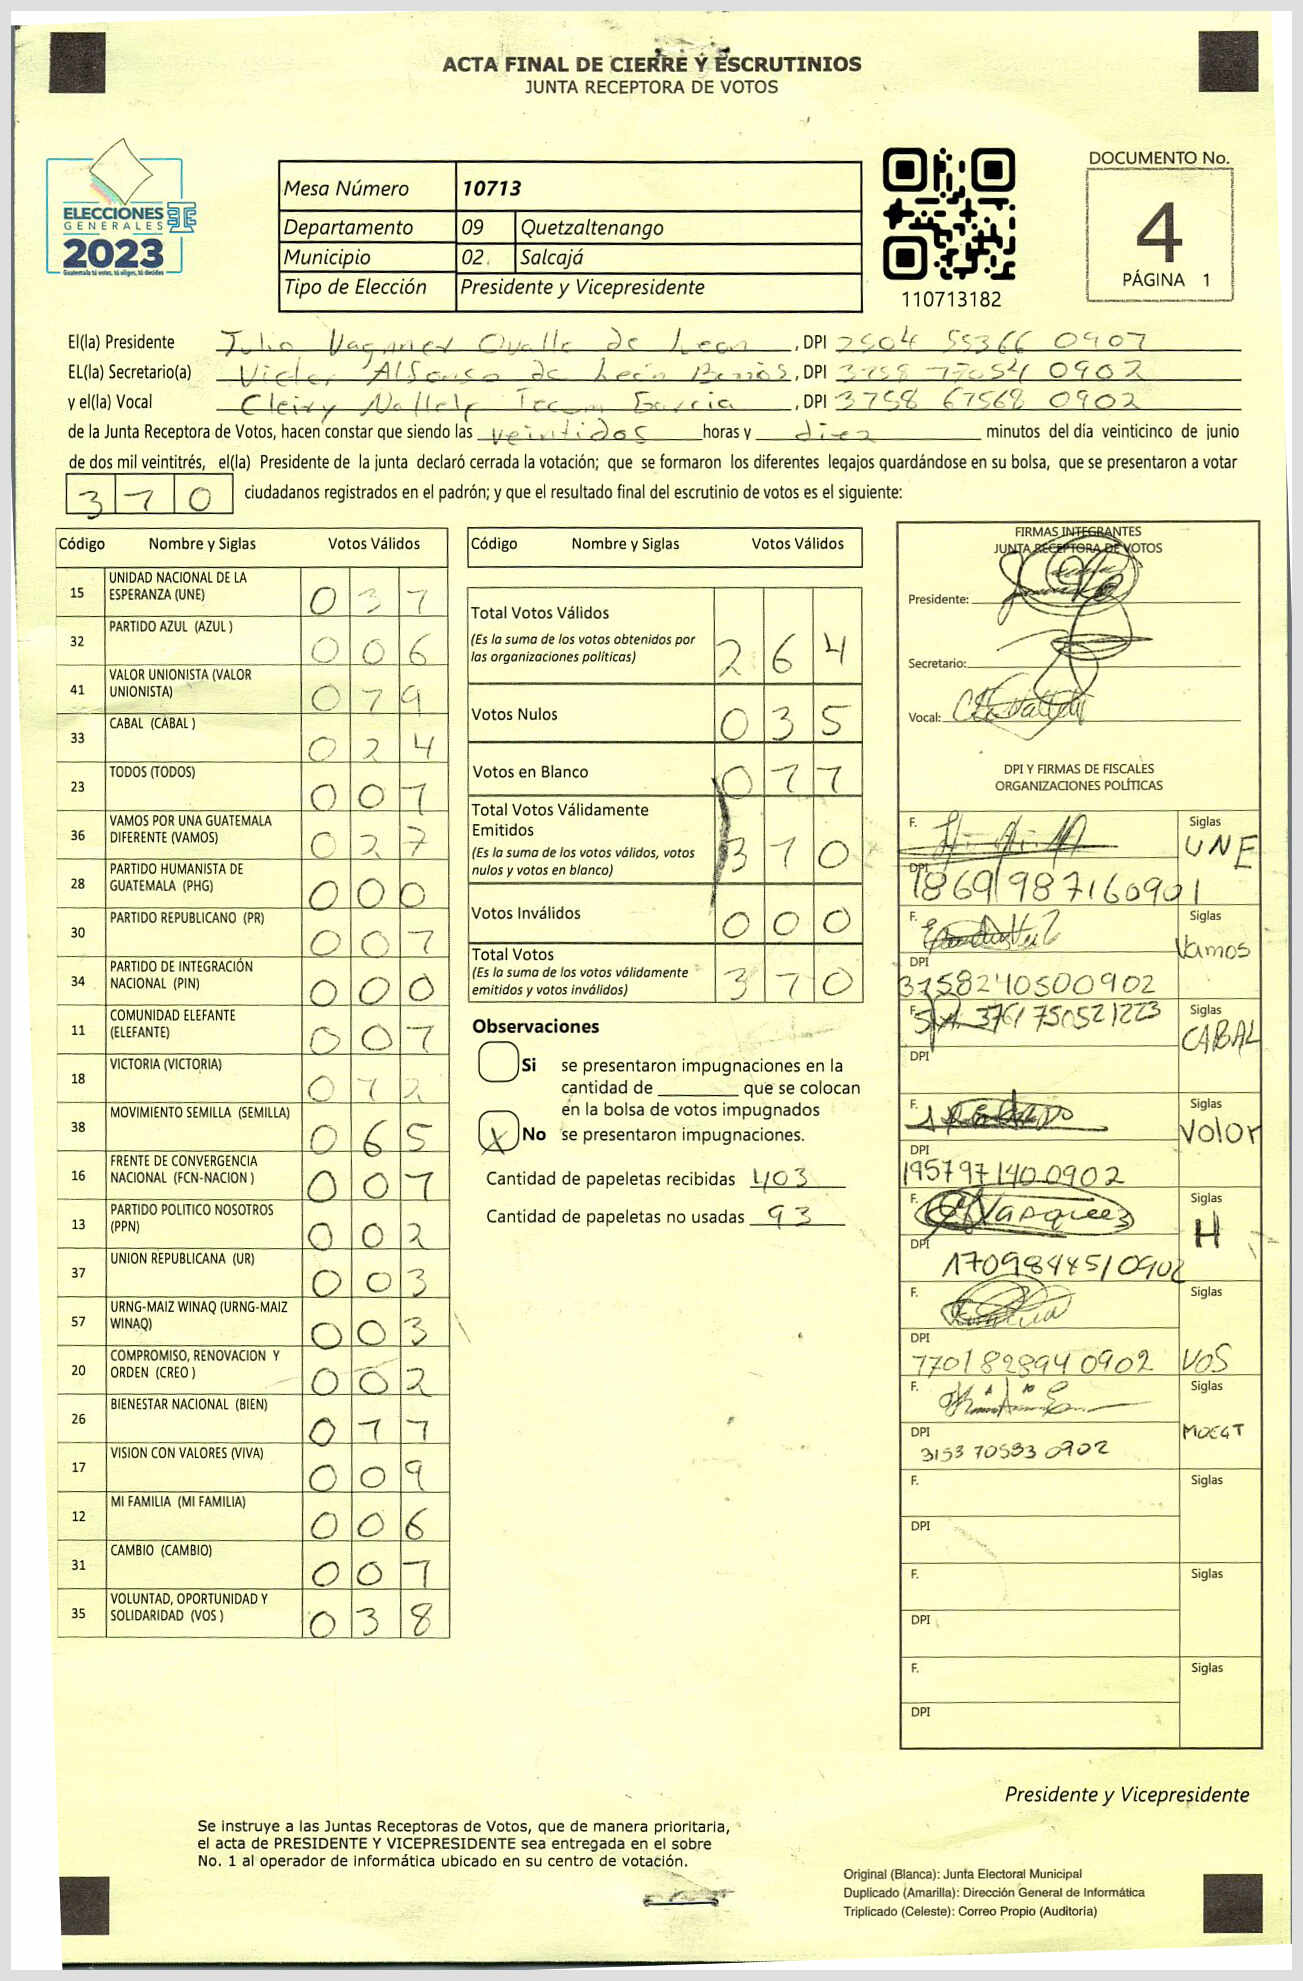 ACTA FINAL DE CIERRE Y ESCRUTINIOS
JUNTA RECEPTORA DE VOTOS
ELECCIONES
GENERALES
2023
Guatemala tú votas, tú eliges, tú decides
Mesa Número 10713
Departamento 09 Quetzaltenango
Municipio 02 Salcajá
Tipo de Elección Presidente y Vicepresidente
110713182
DOCUMENTO No.
4
PÁGINA 1
El(la) Presidente Julio Vagner Ovalle de Leon, DPI 2504 55366 0901
EL(la) Secretario(a) Victor Alfonso de León Barrios, DPI 0902
y el(la) Vocal Tecum Garcia, DPI 3758 67568 0902
de la Junta Receptora de Votos, hacen constar que siendo las veintidos horas y diez minutos del día veinticinco de junio
de dos mil veintitrés, el(la) Presidente de la junta declaró cerrada la votación; que se formaron los diferentes legajos guardándose en su bolsa, que se presentaron a votar
310 ciudadanos registrados en el padrón; y que el resultado final del escrutinio de votos es el siguiente:
Código Nombre y Siglas Votos Válidos
15 UNIDAD NACIONAL DE LA ESPERANZA (UNE) 031
32 PARTIDO AZUL (AZUL ) 006
41 VALOR UNIONISTA (VALOR UNIONISTA) 019
33 CABAL (CABAL ) 024
23 TODOS (TODOS) 001
36 VAMOS POR UNA GUATEMALA DIFERENTE (VAMOS) 027
28 PARTIDO HUMANISTA DE GUATEMALA (PHG) 000
30 PARTIDO REPUBLICANO (PR) 001
34 PARTIDO DE INTEGRACIÓN NACIONAL (PIN) 000
11 COMUNIDAD ELEFANTE (ELEFANTE) 001
18 VICTORIA (VICTORIA) 012
38 MOVIMIENTO SEMILLA (SEMILLA) 065
16 FRENTE DE CONVERGENCIA NACIONAL (FCN-NACION ) 001
13 PARTIDO POLITICO NOSOTROS (PPN) 002
37 UNION REPUBLICANA (UR) 003
57 URNG-MAIZ WINAQ (URNG-MAIZ WINAQ) 003
20 COMPROMISO, RENOVACION Y ORDEN (CREO ) 002
26 BIENESTAR NACIONAL (BIEN) 011
17 VISION CON VALORES (VIVA) 009
12 MI FAMILIA (MI FAMILIA) 006
31 CAMBIO (CAMBIO) 001
35 VOLUNTAD, OPORTUNIDAD Y SOLIDARIDAD (VOS ) 038
Código Nombre y Siglas Votos Válidos
Total Votos Válidos 264
(Es la suma de los votos obtenidos por
las organizaciones políticas)
Votos Nulos 035
Votos en Blanco 011
Total Votos Válidamente
Emitidos 310
(Es la suma de los votos válidos, votos
nulos y votos en blanco)
Votos Inválidos 000
Total Votos 310
(Es la suma de los votos válidamente
emitidos y votos inválidos)
Observaciones
Si se presentaron impugnaciones en la
cantidad de ________ que se colocan
en la bolsa de votos impugnados
X No se presentaron impugnaciones.
Cantidad de papeletas recibidas 403
Cantidad de papeletas no usadas 93
FIRMAS INTEGRANTES
JUNTA RECEPTORA DE VOTOS
Presidente:
Secretario:
Vocal:
DPI Y FIRMAS DE FISCALES
ORGANIZACIONES POLÍTICAS
F. Siglas UNE
DPI 1869198716 0901
F. Siglas Vamos
DPI 3758240500902
F. 3761750521223 Siglas CABAL
DPI
F. Siglas Valor
DPI 1957971400902
F. Vasquez Siglas H
DPI 1709844510902
F. Siglas VOS
DPI 7701828940902
F. Siglas
DPI 3153 70533 0902
F. Siglas
DPI
F. Siglas
DPI
F. Siglas
DPI
Presidente y Vicepresidente
Se instruye a las Juntas Receptoras de Votos, que de manera prioritaria,
el acta de PRESIDENTE Y VICEPRESIDENTE sea entregada en el sobre
No. 1 al operador de informática ubicado en su centro de votación.
Original (Blanca): Junta Electoral Municipal
Duplicado (Amarilla): Dirección General de Informática
Triplicado (Celeste): Correo Propio (Auditoria)